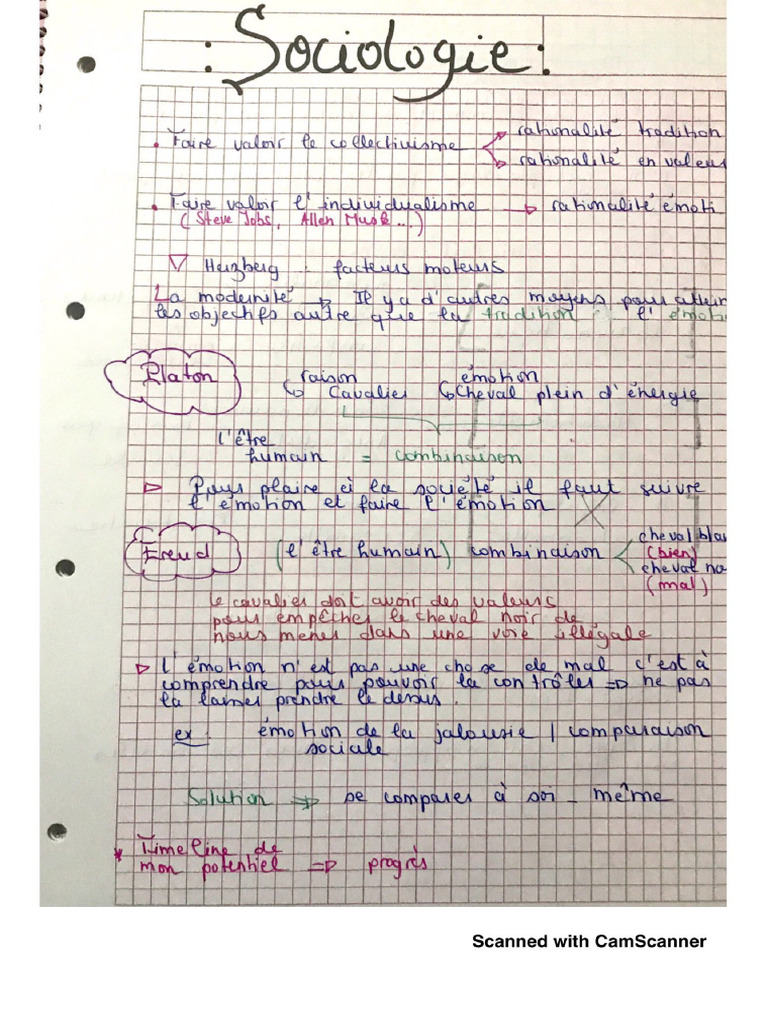 : Sociologie :
. Faire valoir le collectivisme → rationalité tradition
→ rationalité en valeus
. Faire valoir l'individualisme → rationalité émoti
(Steve Jobs, Allen Musk...)
▽ Herzberg : facteurs moteurs
La modernité → Il y a d'autres moyens pour attein
les objectifs autre que la tradition : l'émoti
Platon
raison émotion
↳ Cavalier ↳ Cheval plein d'énergie
l'être
humain = combinaison
▷ Pour plaire à la société il faut suivre
l'émotion et faire l'émotion
Freud (l'être humain) combinaison < cheval bla
(bien)
cheval no
(mal)
Le cavalier doit avoir des valeurs
pour empêcher le cheval noir de
nous mener dans une voie illégale
▷ L'émotion n'est pas une chose de mal c'est à
comprendre pour pouvoir la contrôler ⇒ ne pas
la laisser prendre le dessus.
ex : émotion de la jalousie / comparaison
sociale
Solution ⇒ se comparer à soi - même
* Timeline de
mon potentiel ⇒ progrès
Scanned with CamScanner